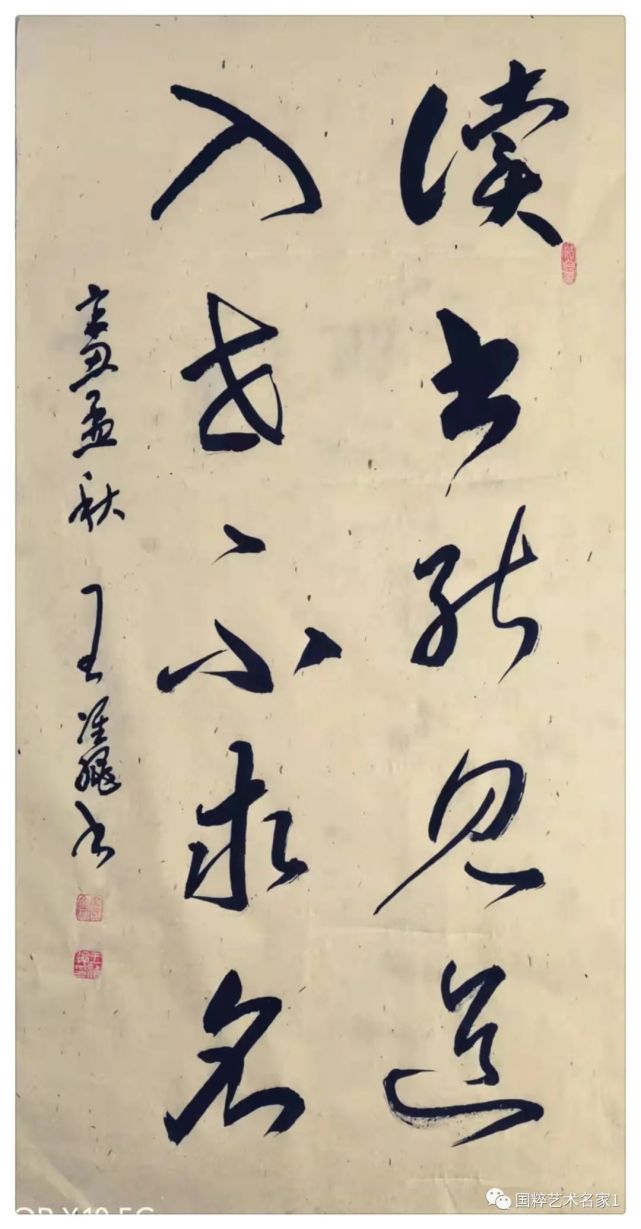 读书能见道
入世不求名
孟秋 王 书
国粹艺术名家1